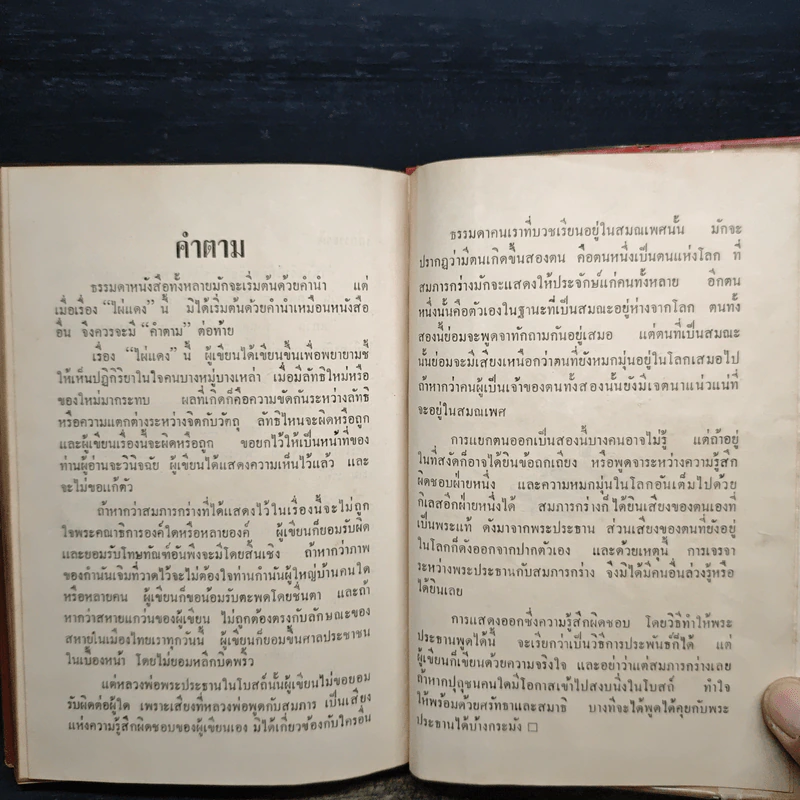 คำตาม
ธรรมดาหนังสือทั้งหลายมักจะเริ่มต้นด้วยคำนำ แต่
เมื่อเรื่อง “ไผ่แดง” นี้ มิได้เริ่มต้นด้วยคำนำเหมือนหนังสือ
อื่น จึงควรจะมี “คำตาม” ต่อท้าย
เรื่อง “ไผ่แดง” นี้ ผู้เขียนได้เขียนขึ้นเพื่อพยายามชี้
ให้เห็นปฏิกิริยาในใจคนบางหมู่บางเหล่า เมื่อมีลัทธิใหม่หรือ
ของใหม่มากระทบ ผลที่เกิดก็คือความขัดกันระหว่างลัทธิ
หรือความแตกต่างระหว่างจิตกับวัตถุ ลัทธิไหนจะผิดหรือถูก
และผู้เขียนเรื่องนี้จะผิดหรือถูก ขอยกไว้ให้เป็นหน้าที่ของ
ท่านผู้อ่านจะวินิจฉัย ผู้เขียนได้แสดงความเห็นไว้แล้ว และ
จะไม่ขอแก้ตัว
ถ้าหากว่าสมภารกร่างที่ได้แสดงไว้ในเรื่องนี้จะไม่ถูก
ใจพระคณาธิการองค์ใดหรือหลายองค์ ผู้เขียนก็ยอมรับผิด
และยอมรับโทษทัณฑ์อันพึงจะมีโดยสิ้นเชิง ถ้าหากว่าภาพ
ของกำนันเจิมที่วาดไว้จะไม่ต้องใจท่านกำนันผู้ใหญ่บ้านคนใด
หรือหลายคน ผู้เขียนก็ขอน้อมรับตะพดโดยชื่นตา และถ้า
หากว่าสหายแกว่นของผู้เขียน ไม่ถูกต้องตรงกับลักษณะของ
สหายในเมืองไทยเราทุกวันนี้ ผู้เขียนก็ยอมขึ้นศาลประชาชน
ในเบื้องหน้า โดยไม่ยอมหลีกบิดพริ้ว
แต่หลวงพ่อพระประธานในโบสถ์นั้นผู้เขียนไม่ขอยอม
รับผิดต่อผู้ใด เพราะเสียงที่หลวงพ่อพูดกับสมภาร เป็นเสียง
แห่งความรู้สึกผิดชอบของผู้เขียนเอง มิได้เกี่ยวข้องกับใครอื่น
ธรรมดาคนเราที่บวชเรียนอยู่ในสมณเพศนั้น มักจะ
ปรากฏว่ามีตนเกิดขึ้นสองตน คือตนหนึ่งเป็นตนแห่งโลก ที่
สมภารกร่างมักจะแสดงให้ประจักษ์แก่คนทั้งหลาย อีกตน
หนึ่งนั้นคือตัวเองในฐานะที่เป็นสมณะอยู่ห่างจากโลก ตนทั้ง
สองนี้ย่อมจะพูดจาทักถามกันอยู่เสมอ แต่ตนที่เป็นสมณะ
นั้นย่อมจะมีเสียงเหนือกว่าตนที่ยังหมกมุ่นอยู่ในโลกเสมอไป
ถ้าหากว่าคนผู้เป็นเจ้าของตนทั้งสองนั้นยังมีเจตนาแน่วแน่ที่
จะอยู่ในสมณเพศ
การแยกตนออกเป็นสองนี้บางคนอาจไม่รู้ แต่ถ้าอยู่
ในที่สงัดก็อาจได้ยินข้อถกเถียง หรือพูดจาระหว่างความรู้สึก
ผิดชอบฝ่ายหนึ่ง และความหมกมุ่นในโลกอันเต็มไปด้วย
กิเลสอีกฝ่ายหนึ่งได้ สมภารกร่างก็ได้ยินเสียงของตนเองที่
เป็นพระแท้ ดังมาจากพระประธาน ส่วนเสียงของตนที่ยังอยู่
ในโลกก็ดังออกจากปากตัวเอง และด้วยเหตุนี้ การเจรจา
ระหว่างพระประธานกับสมภารกร่าง จึงมิได้มีคนอื่นล่วงรู้หรือ
ได้ยินเลย
การแสดงออกซึ่งความรู้สึกผิดชอบ โดยวิธีทำให้พระ
ประธานพูดได้นี้ จะเรียกว่าเป็นวิธีการประพันธ์ก็ได้ แต่
ผู้เขียนก็เขียนด้วยความจริงใจ และอย่าว่าแต่สมภารกร่างเลย
ถ้าหากปุถุชนคนใดมีโอกาสเข้าไปสงบนิ่งในโบสถ์ ทำใจ
ให้พร้อมด้วยศรัทธาและสมาธิ บางทีจะได้พูดได้คุยกับพระ
ประธานได้บ้างกระมัง □